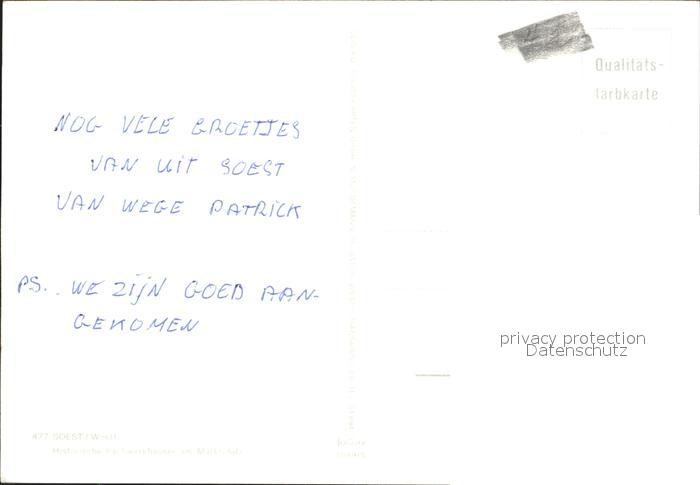 Qualitäts-
farbkarte
NOG VELE GROETJES
VAN UIT SOEST
VAN WEGE PATRICK
PS.. WE ZIJN GOED AAN-
GEKOMEN
privacy protection
Datenschutz
477 SOEST / Westf.
Historische Fachwerkhäuser am Marktplatz